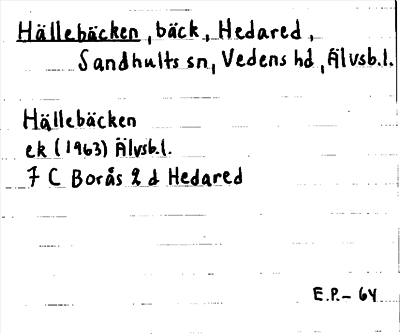 Hällebäcken, bäck, Hedared,
Sandhults sn, Vedens hd, Älvsb.l.
Hällebäcken
ek (1963) Älvsb.l.
7 C Borås 2 d Hedared
E.P. - 64